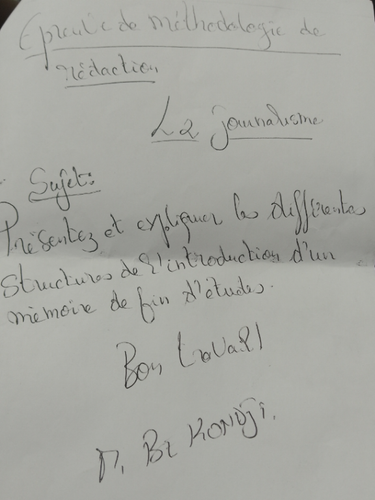 Epreuve de méthodologie de
rédaction
L2 journalisme
Sujet:
Présentez et expliquer les différentes
structures de l'introduction d'un
mémoire de fin d'études.
Bon travail
KONDJI.